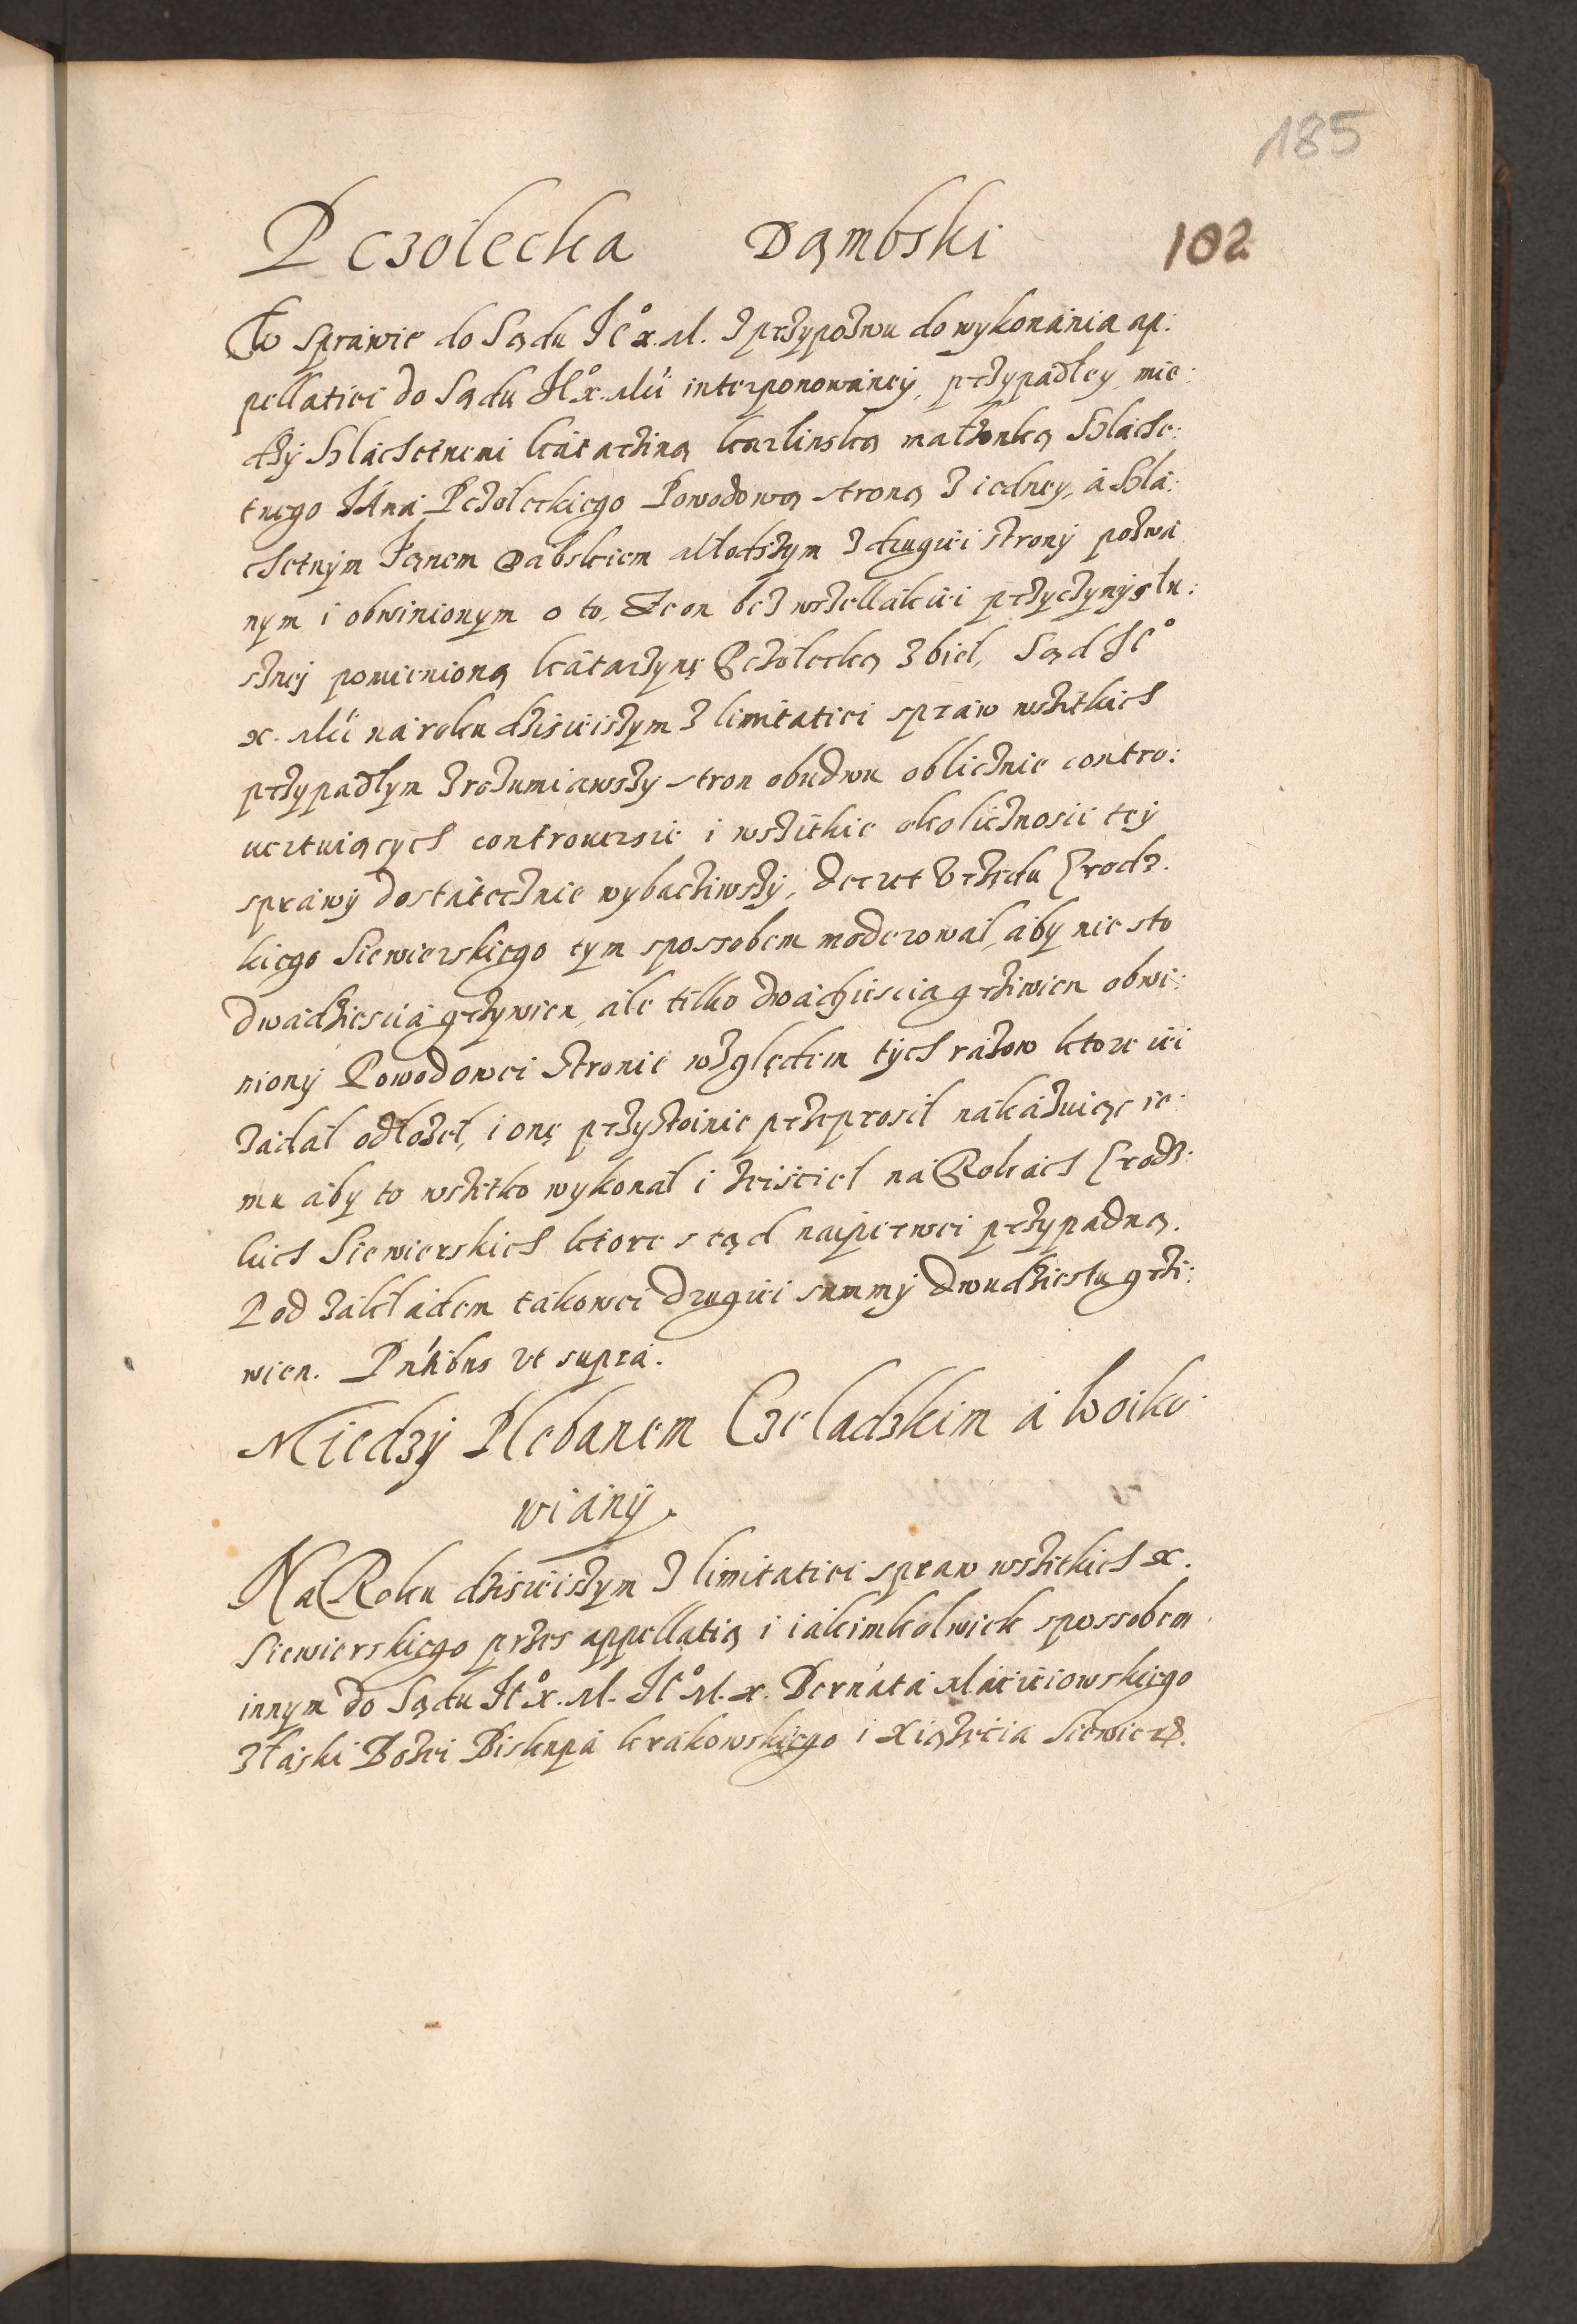 185
Pczolecka Dąmbski 102
W sprawie do Sądu Jeº x. M. z przypozwu do wykonánia ap:
pellatiei do Sądu Jeº x. Mći interponowáney, przypadłey mie:
dzÿ Szlachetnemi Kátarziną Karlinską małżonką Szlache:
tnego Jáná Pczoleckiego Powodową stroną z iedney, á Szla:
chetnÿm Janem Dabskiem Młodszym z drugiei stronÿ pozwa
nym i obwinionym o to, Ze on bez wszellákiei przyczynÿ słu:
sznej pomienioną Kátarzynę Pczolecką zbiel, Sąd Jeº
x. Mći ná roku dzisieiszym z limitatiei spraw wszitkich
przypadłym zrozumiawszy stron obudwu oblicznie contro:
uertuiącÿch controuersie i wszitkie okolicznosci teÿ
sprawÿ dostátecznie wybacziwszÿ, Decret Vrzędu Grodz.
kiego Siewierskiego tym spossobem moderowáł, áby nie sto
dwadziesciá grzywien, ále tilko dwádziescia grziwien obwi:
nionÿ Powodowei stronie względem tÿch rázow ktore iei
zádáł odłożeł, i onę przystoinie przeprosił nákázuiąc ie:
mu áby to wszitko wykonáł i ziscieł ná Rokách Grodz:
kich Siewierskich ktore stąd najpierwei przypadną.
Pod zákłádem tákowei drugiei summÿ dwudziestu grzi:
wien. Pñtibus vt supra.
Miedzÿ Plebanem Czeladzkim á Woiko
wiánÿ.
Na Roku dzisieiszym z limitatiei spraw wszitkich x.
Siewierskiego przes appellatią i iákimkolwiek spossobem
innym do Sądu Jeº x. M. Jeº M. x. Bernátá Máciei­owskiego
z łáski Bozei Biskupá krákowskiego i Xiążęcia Siewierz.